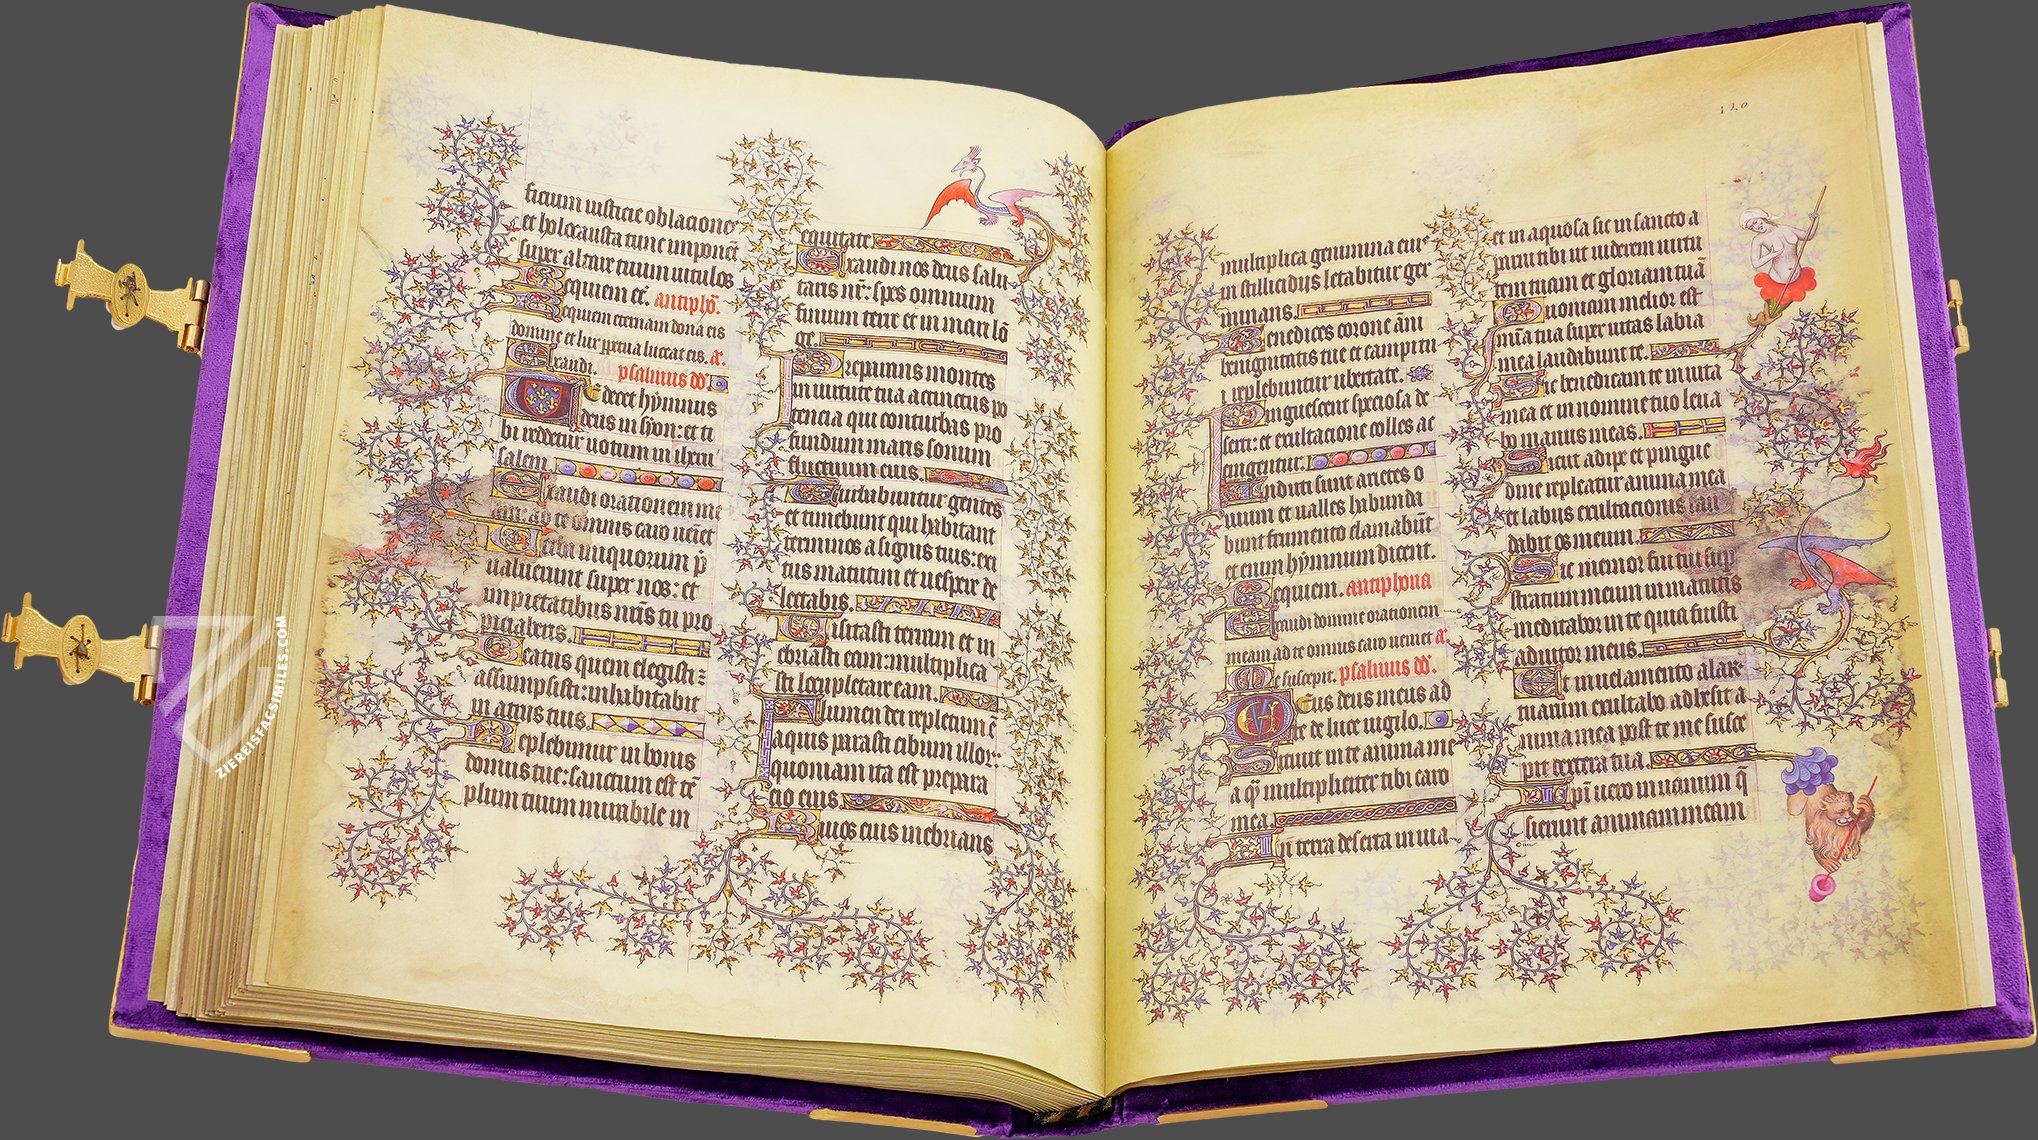 ficium iusticie oblaciones
et holocausta tunc imponēt
super altare tuum uitulos
Requiem et̄. antiphō.
Requiem eternam dona eis
domine et lux ꝑpetua luceat eis. a.
Exaudi. psalmus dd̄.
Te decet hẏmnus
deus in sẏon: et ti
bi reddetur uotum in ihrlm
salem.
Exaudi orationem me
am: ad te omnis caro ueniet
Uerba iniquorum p̄
ualuerunt super nos: et
impietatibus nr̄is tu pro
piciaberis.
Beatus quem elegisti: ⁊
assumpsisti: inhabitabit
in atriis tuis.
Replebimur in bonis
domus tue: sanctum est tē
plum tuum mirabile in
equitate
Exaudi nos deus salu
taris nr̄: spes omnium
finium terre et in mari lō
ge.
Preparans montes
in uirtute tua accinctus po
tencia qui conturbas pro
fundum maris sonum
fluctuum eius.
Turbabuntur gentes
et timebunt qui habitant
terminos a signis tuis: exi
tus matutini et uespere de
lectabis.
Uisitasti terram et in
ebriasti eam: multiplica
sti locupletare eam.
Flumen dei repletum ē
aquis parasti cibum illor:
quoniam ita est prepara
cio eius.
Riuos eius inebrians
120
multiplica genimina eiꝰ
in stillicidijs letabitur ger
minans.
Benedices corone ām
benignitatis tue et campi tu
i replebuntur ubertate.
Pinguescent speciosa de
serti: et exultacione colles ac
cingentur.
Induti sunt arietes o
uium et ualles habunda
bunt frumento clamabūt
et enim hẏmnum dicent.
Requiem. antiphona
Exaudi domine orationem
meam ad te omnis caro ueniet a.
Me suscepit. psalmus dd̄.
Deus deus meus ad
te de luce uigilo.
Sitiuit in te anima me
a q̄ multipliciter tibi caro
mea.
In terra deserta in uia
et in aquosa sic in sancto a
parui tibi ut uiderem uirtu
tem tuam et gloriam tuā
Quoniam melior est
mīa tua super uitas labia
mea laudabunt te.
Sic benedicam te in uita
mea et in nomine tuo leua
bo manus meas.
Sicut adipe et pingue
dine repleatur anima mea
et labiis exultacionis lau
dabit os meum.
Sic memor fui tui sup
stratum meum in matutinis
meditabor in te quia fuisti
adiutor meus.
Et in uelamento alar
tuarum exultabo adhesit a
nima mea post te me susce
pit dextera tua.
Ipī uero in uanum q̄
sierunt animam meam
ZIEREISFACSIMILES.COM